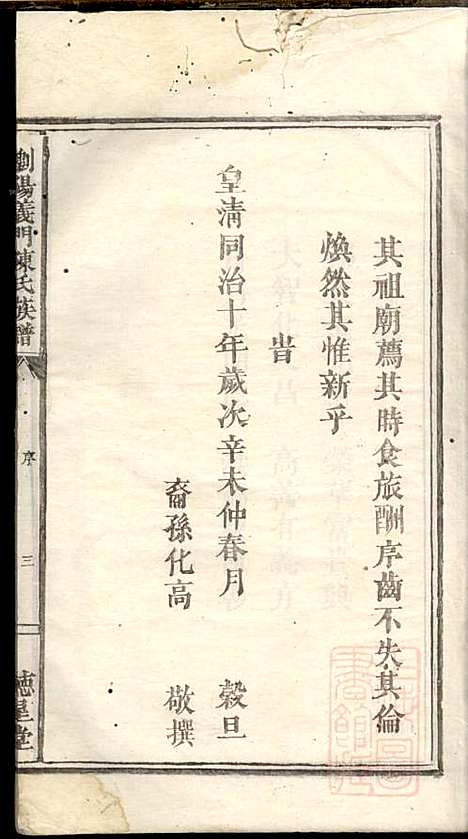 其祖廟薦其時食旅酬序齒不失其倫
煥然其惟新乎
旹
皇清同治十年歲次辛未仲春月 穀旦
裔孫化高 敬撰
瀏陽義門陳氏族譜 序 三 德星堂